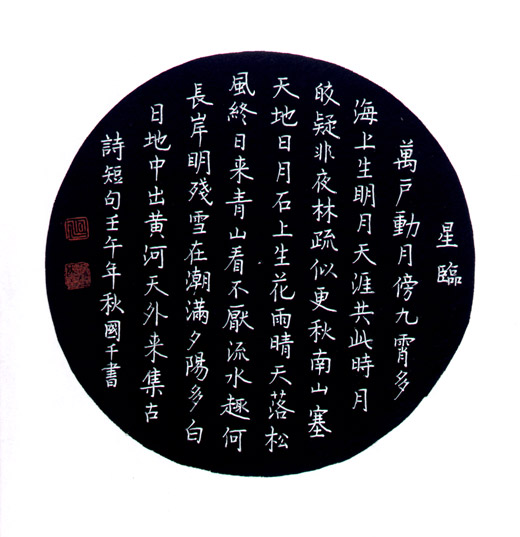 星臨
萬戶動月傍九霄多
海上生明月天涯共此時月
皎疑非夜林疏似更秋南山塞
天地日月石上生花雨晴天落松
風終日来青山看不厭流水趣何
長岸明殘雪在潮滿夕陽多白
日地中出黄河天外来集古
詩短句壬午年秋國千書